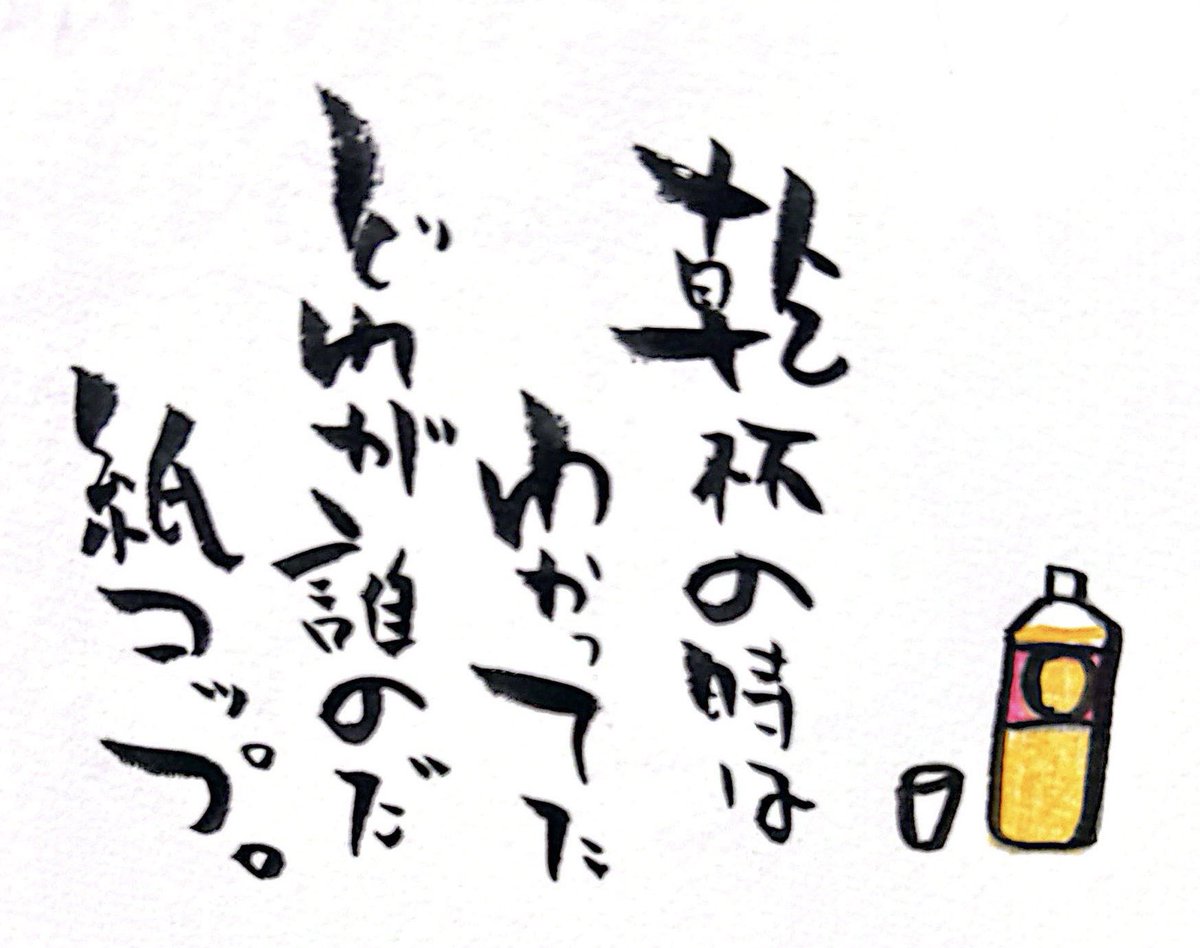 乾杯の時は
わかってた
どれが誰のだ
紙コップ。